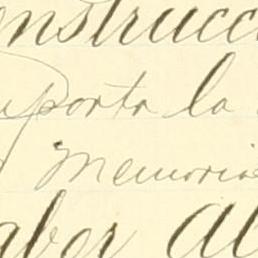 onstrucc
porta la
memoria
aber al